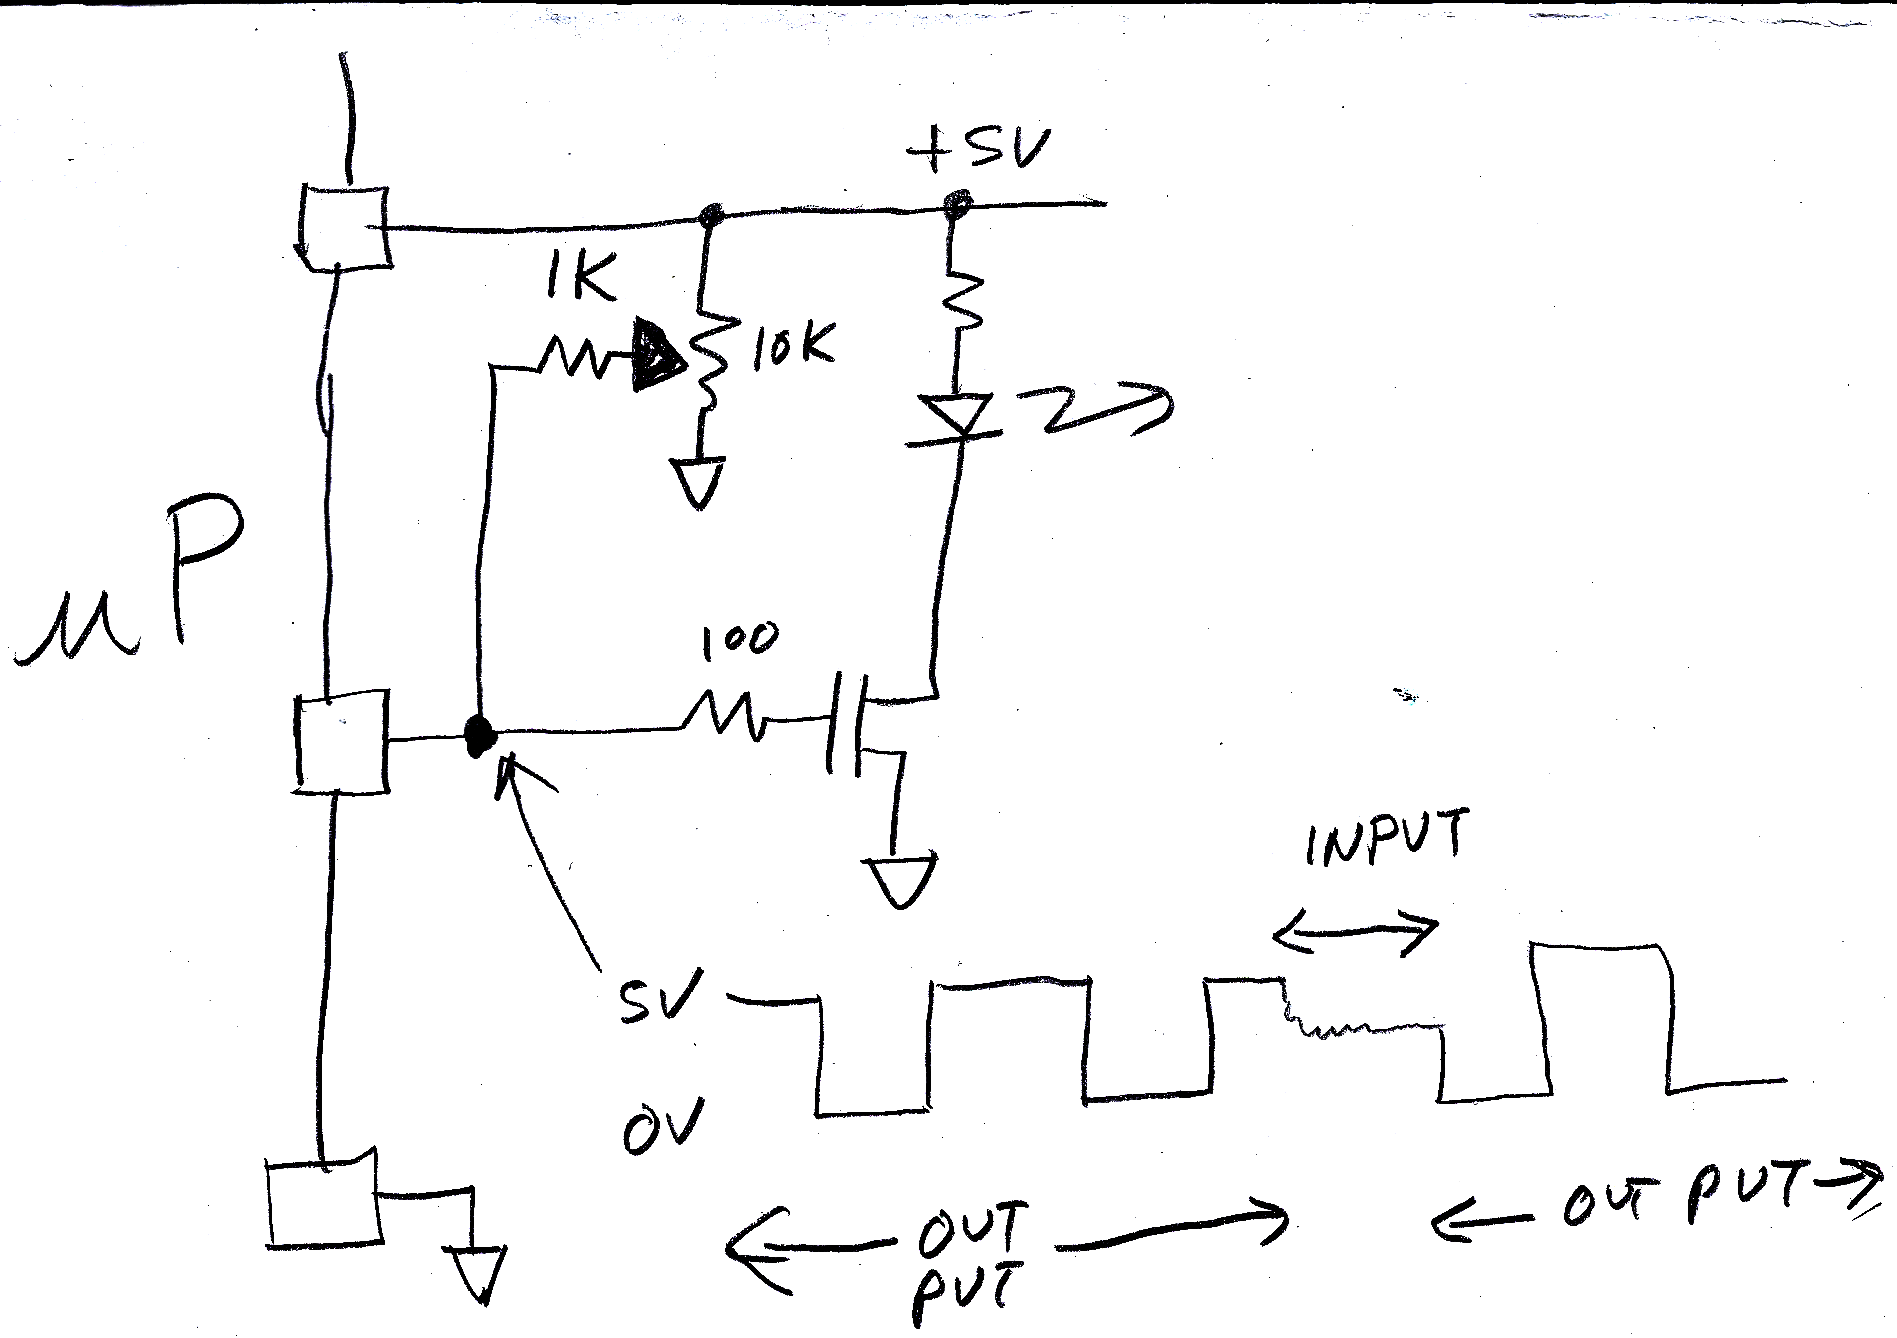 +5V
1K
10K
μP
100
INPUT
5V
0V
OUT PUT
OUT
PUT